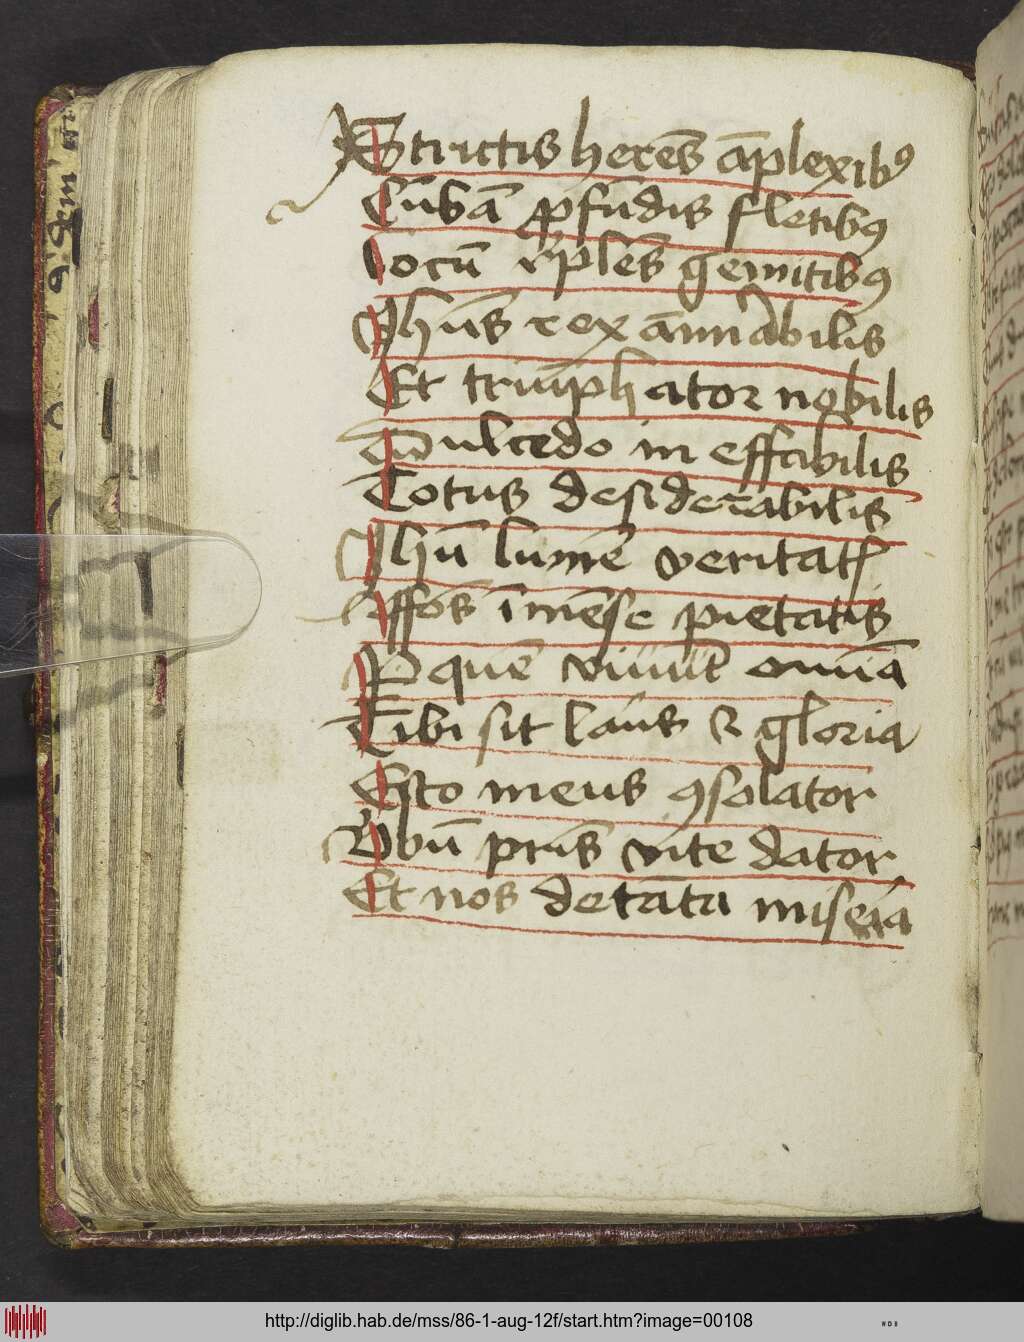 Strictis herēs āplexibꝰ
Tūbā ꝓfūdis fletibꝰ
locū rͥplēs gemitibꝰ
Ihūs rex āmirabilis
Et triūphator nobilis
dulcedo in effabilis
Totus desiderabilis
Ihū lumē veritatꝭ
effōs īmēse pietatis
P quē viuūt omīa
Tibi sit laus ⁊ gloria
Esto meus ꝯsolator
Vbū pris vite dator
Et nos de tāta miseia
http://diglib.hab.de/mss/86-1-aug-12f/start.htm?image=00108